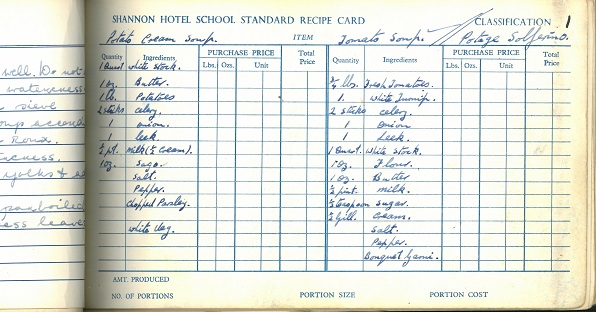 SHANNON HOTEL SCHOOL STANDARD RECIPE CARD CLASSIFICATION 1
Potato Cream Soup. ITEM Tomato Soup. / Potage Solferino.
Quantity Ingredients PURCHASE PRICE Total Price
Lbs. Ozs. Unit
1 Quart white stock.
1 oz. Butter.
1 lb. Potatoes
2 sticks celery.
1 onion.
1 leek.
½ pt. milk (½ Cream).
1 oz. Sago.
Salt.
Pepper.
chopped Parsley.
white veg.
Quantity Ingredients PURCHASE PRICE Total Price
Lbs. Ozs. Unit
¾ lbs. Fresh Tomatoes.
1. white Turnip.
2 sticks celery.
1 Onion
1 Leek.
1 Quart. White Stock.
1 oz. Flour.
1 oz. Butter
½ pint. milk.
½ teaspoon sugar.
½ gill. Cream.
Salt.
Pepper.
Bouquet Garni.
AMT. PRODUCED
NO. OF PORTIONS PORTION SIZE PORTION COST
well. Do not
wateriness.
sieve
Roux.
yolks &
leave